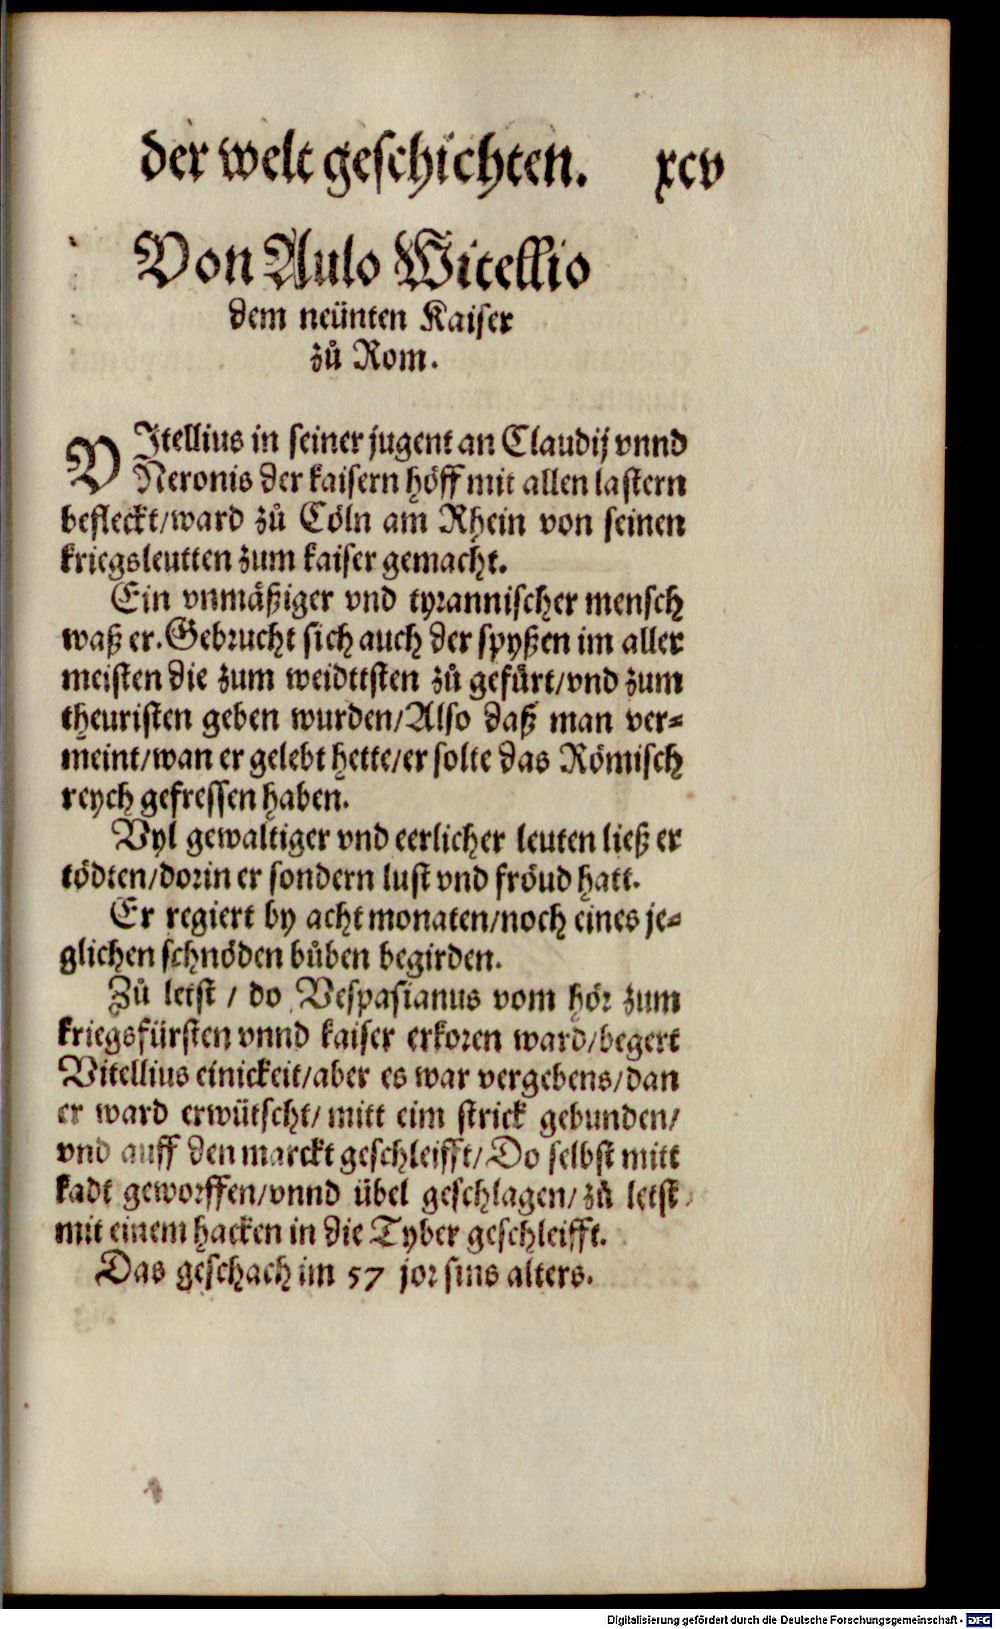 der welt geschichten. xcv
Von Aulo Witellio
dem neünten Kaiser
zů Rom.
VItellius in seiner jugent an Claudij vnnd
Neronis der kaisern höff mit allen lastern
befleckt/ward zů Cöln am Rhein von seinen
kriegsleutten zum kaiser gemacht.
Ein vnmäßiger vnd tyrannischer mensch
waß er. Gebrucht sich auch der spyßen im aller
meisten die zum weidttsten zů gefürt/vnd zum
theuristen geben wurden/Also daß man ver-
meint/wan er gelebt hette/er solte das Römisch
reych gefressen haben.
Vyl gewaltiger vnd eerlicher leuten ließ er
tödten/dorin er sondern lust vnd fröud hatt.
Er regiert by acht monaten/noch eines je-
glichen schnöden bůben begirden.
Zů letst / do Vespasianus vom hör zum
kriegsfürsten vnnd kaiser erkoren ward/begert
Vitellius einickeit/aber es war vergebens/dan
er ward erwütscht/mitt eim strick gebunden/
vnd auff den marckt geschleifft/Do selbst mitt
kadt geworffen/vnnd übel geschlagen/zů letst
mit einem hacken in die Tyber geschleifft.
Das geschach im 57 jor sins alters.
Digitalisierung gefördert durch die Deutsche Forschungsgemeinschaft - DFG